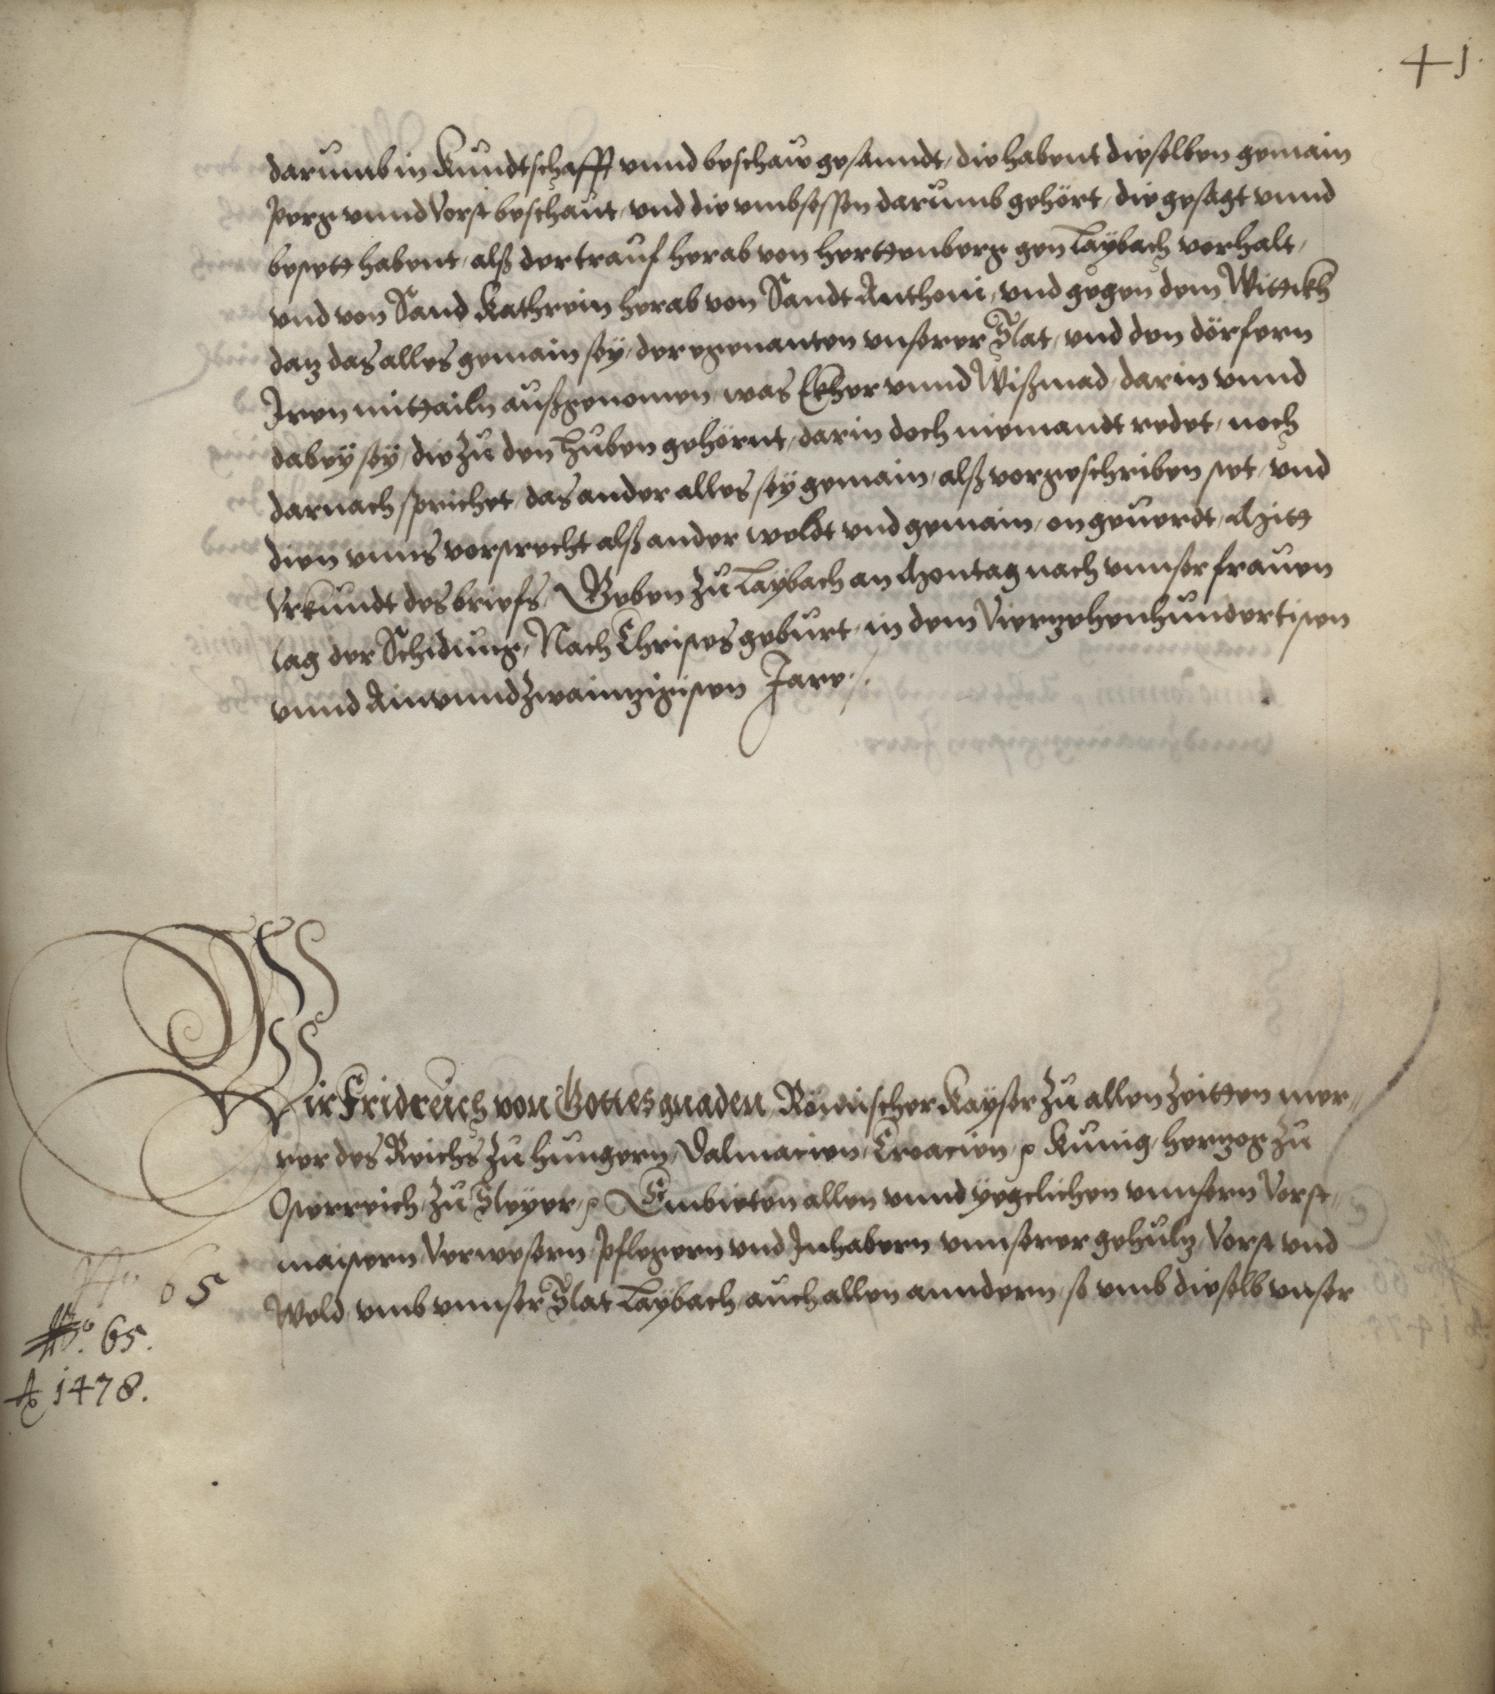 41.
darumb in Kundtschafft vnnd beschaw gesanndt, die habent dieselben gemain
perg vnnd Vorst beschaut, vnd die vmbsessen darumb gehört, die gesagt vnnd
besett habent, alß der trauf herab von Herttenberg gen Laybach verhalt,
vnd von Sand Kathrein herab von Sandt Anthoni, vnd gegen dem Wittikh
daz das alles gemain sey, der egenanten vnserer Stat, vnd den dörfern
Iren mittailn außgenomen, was Ekher vnnd Wißmad darin vnnd
dabey sey, die zu den Huben gehörnt, darin doch niemandt redet, noch
darnach sprichet, das ander alles sey gemain, alß vorgeschriben stet, vnd
dien vnns vorstrecht alß ander weldt vnd gemain, on geuerdt, Mitt
Vrkundt des briefs, Geben zu Laybach an Montag nach vnnser frauen
tag der Schidung, Nach Christes geburt, in dem Vierzehenhundertisten
vnnd Ainvnndzwainzigisten Jare.
Wir Fridreich von Gottes gnaden, Römischer Kayser zu allen Zeitten mer,,
rer des Reichs zu Hungern, Dalmacien, Croacien, p Kunig, herzog zu
Osterreich, zu Steyer, p Embieten allen vnnd yegclichen vnnsern Vorst,,
maistern Verwesern, Pflegern vnd Inhabern vnnserer gehulz, Vorst vnd
Weld, vmb vnnser Stat Laybach, auch allen anndern, so vmb dieselb vnser
No. 65.
Ao 1478.